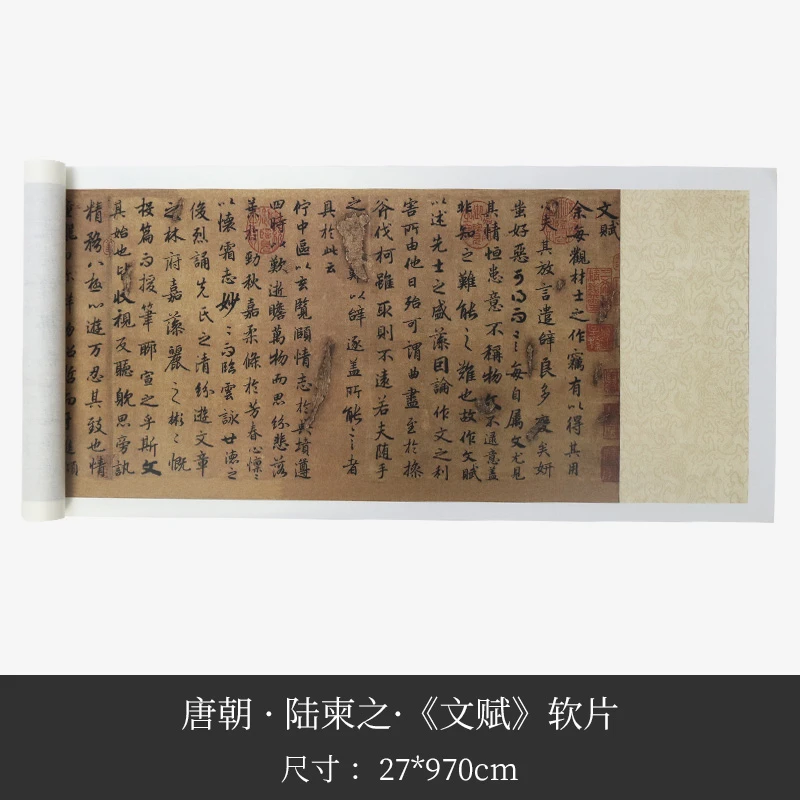 文賦
余每觀材士之作竊有以得其用
心夫其放言遣辭良多變矣妍
蚩好惡可得而言每自属文尤見
其情恒患意不稱物文不逮意盖
非知之難能之難也故作文賦
以述先士之盛藻因論作文之利
害所由他日殆可謂曲盡至於操
斧伐柯雖取則不遠若夫随手
之難以辭逐盖所能言者
具於此云
佇中區以玄覽頤情志於典墳遵
四時以歎逝瞻萬物而思紛悲落
葉於勁秋嘉柔條於芳春心懍〻
以懷霜志妙〻而臨雲詠世德之
俊烈誦先民之清紛遊文章
之林府嘉藻麗之彬〻慨
投篇而援筆聊宣之乎斯文
其始也皆收視反聽耽思旁訊
精務八極心遊万忍其致也情
唐朝·陆柬之·《文赋》软片
尺寸：27*970cm